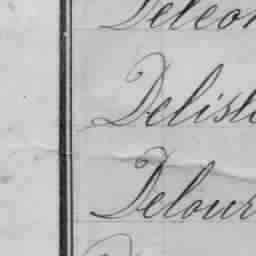 Deleon
Delisle
Delour